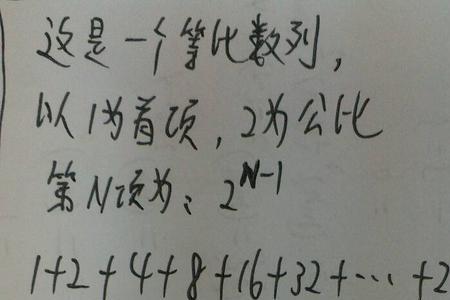 这是一个等比数列,
以1为首项,2为公比
第N项为:2^{N-1}
1+2+4+8+16+32+…+2